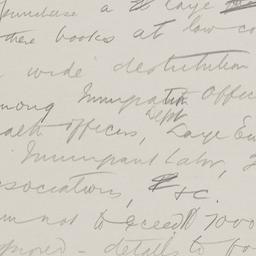 purchase a large
these books at low co
wide destitution
mong Immigratn Offic
Dept
alth officers, Large Em
Immigrant Labr,
ssociations, &c.
m not to exceed 7000
pproved - details to fo